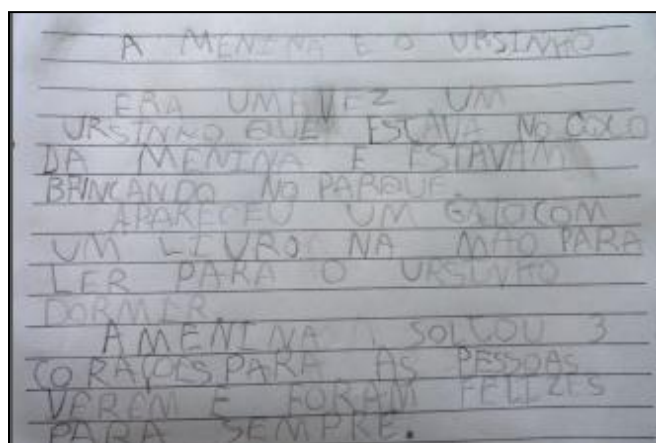 A MENINA E O URSINHO
ERA UMA VEZ UM
URSINHO QUE ESTAVA NO COLO
DA MENINA E ESTAVAM
BRINCANDO NO PARQUE.
APARECEU UM GATO COM
UM LIVRO NA MÃO PARA
LER PARA O URSINHO
DORMER
A MENINA SOLTOU 3
CORAÇÕES PARA AS PESSOAS
VEREM E FORAM FELIZES
PARA SEMPRE.